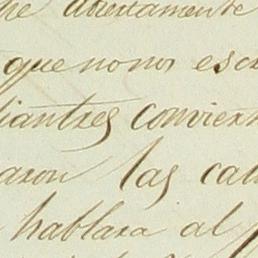 abiertamente
que no nos esc
diantres convien
aron las cat
hablara al